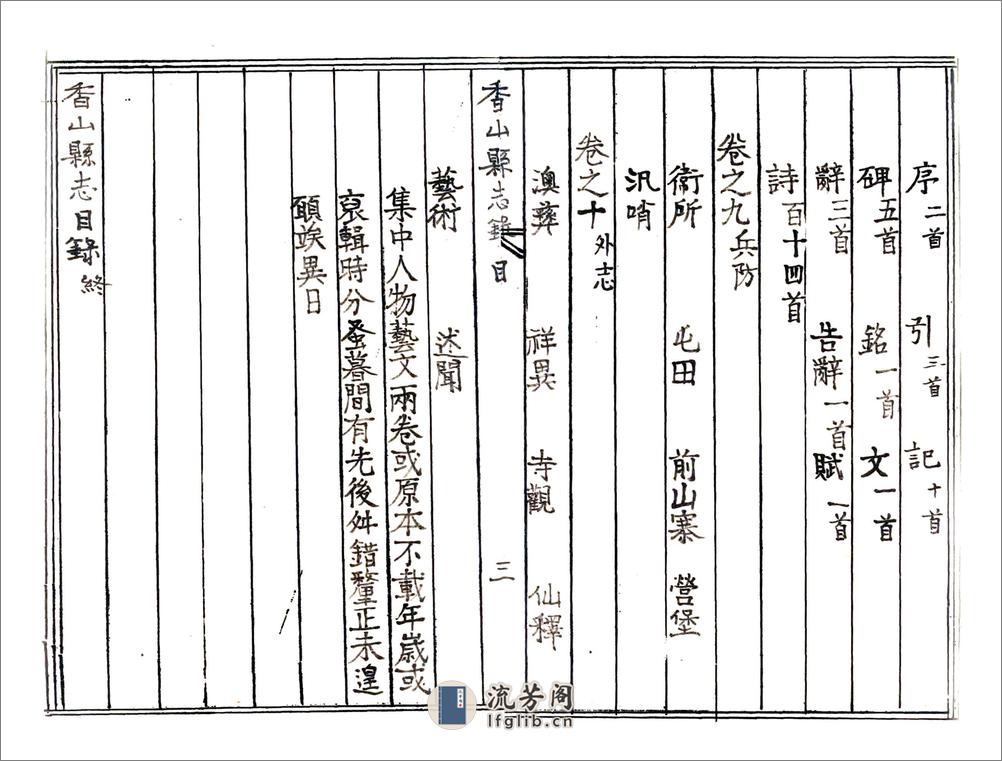 序二首 引三首 記十首
碑五首 銘一首 文一首
辭三首 告辭一首 賦一首
詩百十四首
卷之九兵防
衛所 屯田 前山寨 營堡
汛哨
卷之十外志
澳彝 祥異 寺觀 仙釋
香山縣志錄目 三
藝術 述聞
集中人物藝文兩卷或原本不載年嵗或
裒輯時分蚤暮間有先後舛錯釐正未遑
頤竢異日
香山縣志目錄終
流芳阁
lfglib.cn